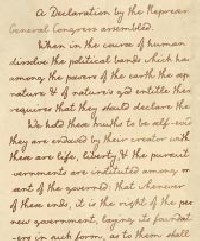 A Declaration by the Represen
General Congress assembled.
When in the course of human
dissolve the political bands which ha
among the powers of the earth the sep
nature & of nature's god entitle the
requires that they should declare the
We hold these truths to be self-evi
they are endowed by their creator with
these are life, liberty, & the pursuit
vernments are instituted among m
sent of the governed. that whenever
of these ends, it is the right of the peo
new government, laying it's foundat
-ers in such form, as to them shall